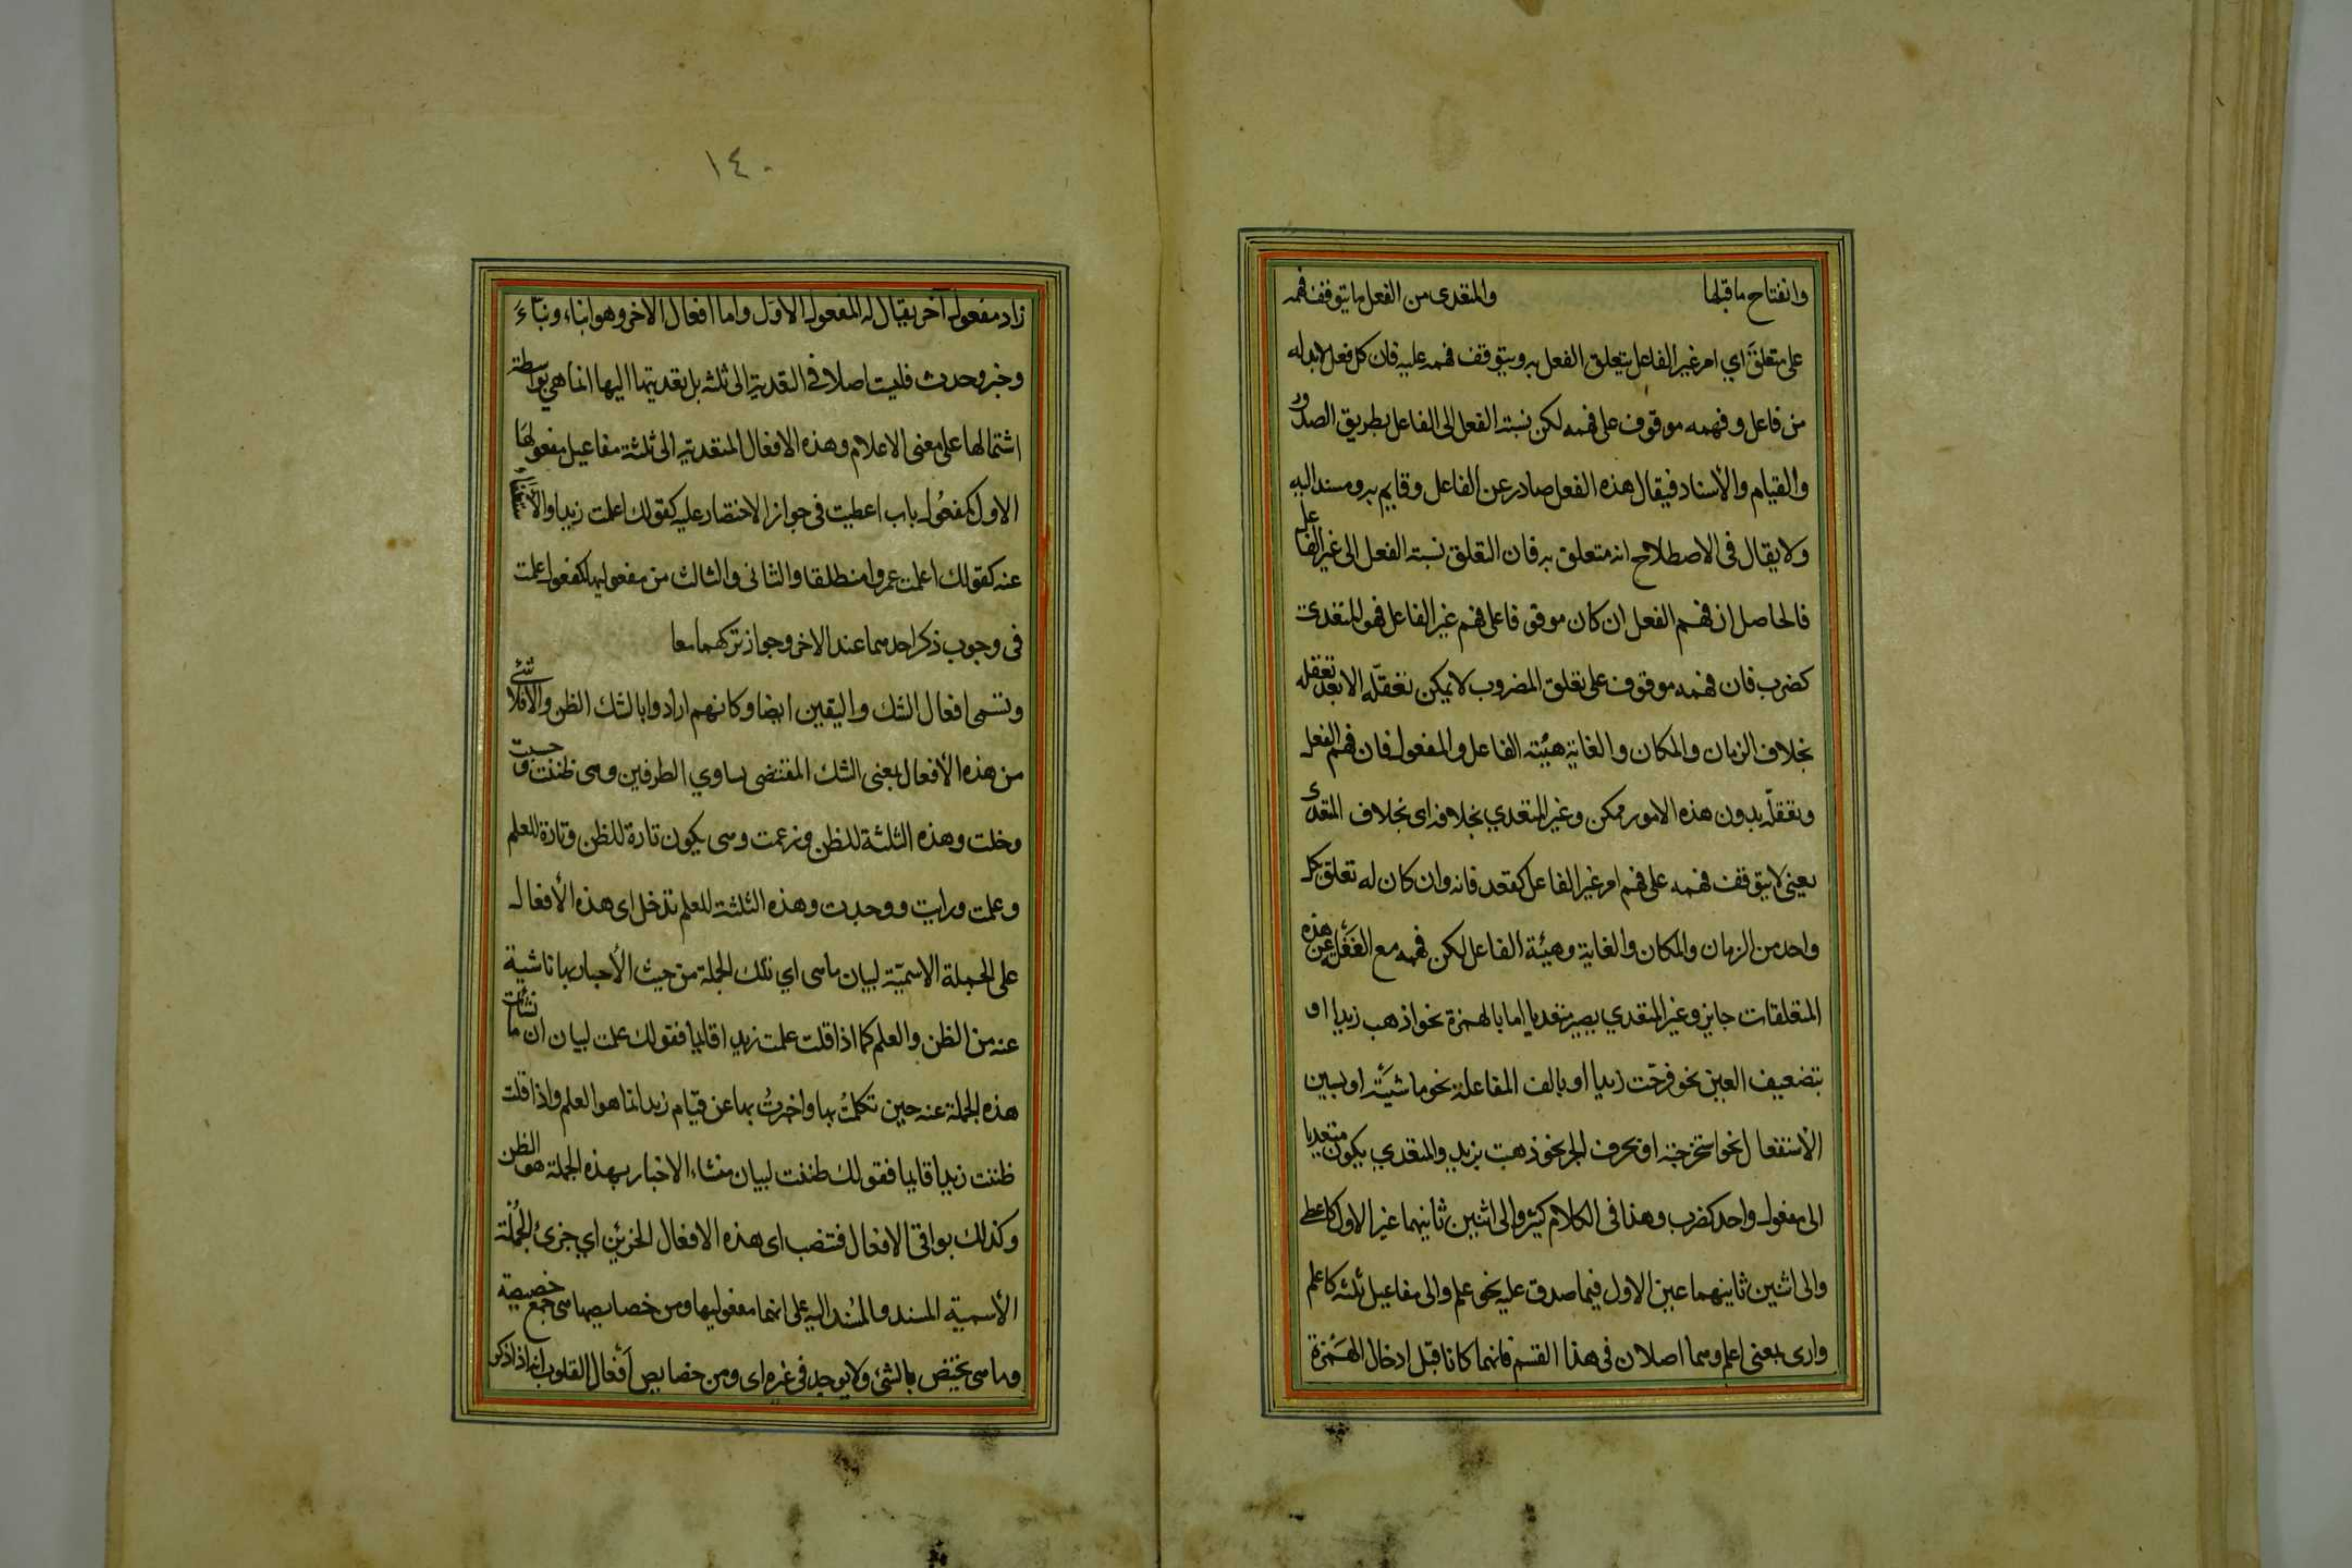 وانفتاح ما قبلها والمتعدى من الفعل ما يتوقف فهمه
على متعلق اي امر غير الفاعل يتعلق الفعل به ويتوقف فهمه عليه فان كل فعل لابد له
من فاعل وفهمه موقوف على فهمه لكن نسبة الفعل الى الفاعل بطريق الصدور
والقيام والأسناد فيقال هذه الفعل صادر عن الفاعل وقايم به ومسند اليه
ولا يقال فى الاصطلاح انه متعلق به فان التعلق نسبة الفعل الى غير الفاعل
فالحاصل ان فهم الفعل ان كان موقوفا على فهم غير الفاعل فهو المتعدى
كضرب فان فهمه موقوف على تعلق المضروب لا يمكن تعقله الا بعد تعقله
بخلاف الزمان والمكان والغاية هيئة الفاعل والمفعول فان فهم الفعل
وتعقله بدون هذه الامور ممكن وغير المتعدي بخلافه اى بخلاف المتعدى
يعنى لا يتوقف فهمه على فهم امر غير الفاعل كقعد فانه وان كان له تعلق بكل
واحد من الزمان والمكان والغاية وهيئة الفاعل لكن فهمه مع الغفلة عن هذه
المتعلقات جايز وغير المتعدي يصير متعديا اما بالهمزة نحو اذهب زيدا او
بتضعيف العين نحو فرحت زيدا او بالف المفاعلة نحو ماشيته او بسين
الاستفعال نحو استخرجته او بحرف الجر نحو ذهبت بزيد والمتعدي يكون متعديا
الى مفعول واحد كضرب وهذا فى الكلام كثير والى اثنين ثانيهما غير الاول كاعطى
والى اثنين ثانيهما عين الاول فيما صدق عليه نحو علم والى مفاعيل ثلثه كاعلم
وارى بمعنى اعلم وهما اصلان فى هذا القسم فانهما كانا قبل ادخال الهمزة
١٤٠
زاد مفعول آخر يقال له المفعول الاول واما افعال الاخر وهو انباء ونباء
وخبر وحدث فليت اصلا فى التعدية الى ثلثه بل تعديتها اليها انما هي بواسطة
اشتمالها على معنى الاعلام وهذه الافعال المتعدية الى ثلثة مفاعيل مفعولها
الاول كمفعول باب اعطيت فى جواز الاختصار عليه كقولك اعلمت زيدا والاستغناء
عنه كقولك اعلمت عمروا منطلقا والثانى والثالث من مفعوليها كمفعولى علمت
فى وجوب ذكر احدهما عند الاخر وجواز تركهما معا
وتسمى افعال الشك واليقين ايضا وكانهم ارادوا بالشك الظن والا فلا شئ
من هذه الأفعال بمعنى الشك المقتضى تساوي الطرفين وهى ظننت وحسبت
وخلت وهذه الثلثة للظن وزعمت وهى يكون تارة للظن وتارة للعلم
وعلمت ورايت ووجدت وهذه الثلثة للعلم تدخل اى هذه الأفعال
على الجملة الاسمية لبيان ما هى اي تلك الجملة من حيث الأخبار بها ناشية
عنه من الظن والعلم كما اذا قلت علمت زيدا قايما فقولك علمت لبيان ان ما نشأت
هذه الجملة عنه حين تكلمت بها واخبرت بها عن قيام زيد انما هو العلم واذا قلت
ظننت زيدا قايما فقولك ظننت لبيان منشاء الاخبار بهذه الجملة هو الظن
وكذلك بواقى الافعال فتنصب اى هذه الافعال الجزئين اي جزئ الجملة
الأسمية المسند والمسند اليه على انهما مفعوليها ومن خصايصها هى جمع خصيصة
وما هى يختص بالشئ ولا يوجد فى غيره اى ومن خصايص أفعال القلوب انه اذا ذكر